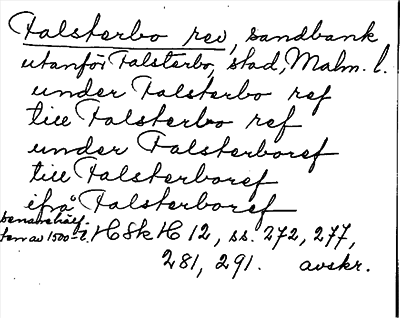 Falsterbo rev, sandbank
utanför Falsterbo, stad, Malm. l.
under Falsterbo ref
till Falsterbo ref
under Falsterboref
till Falsterboref
ifrå Falsterboref
senare hälf-
ten av 1500-t. HSkH 12, ss. 272, 277,
281, 291. avskr.